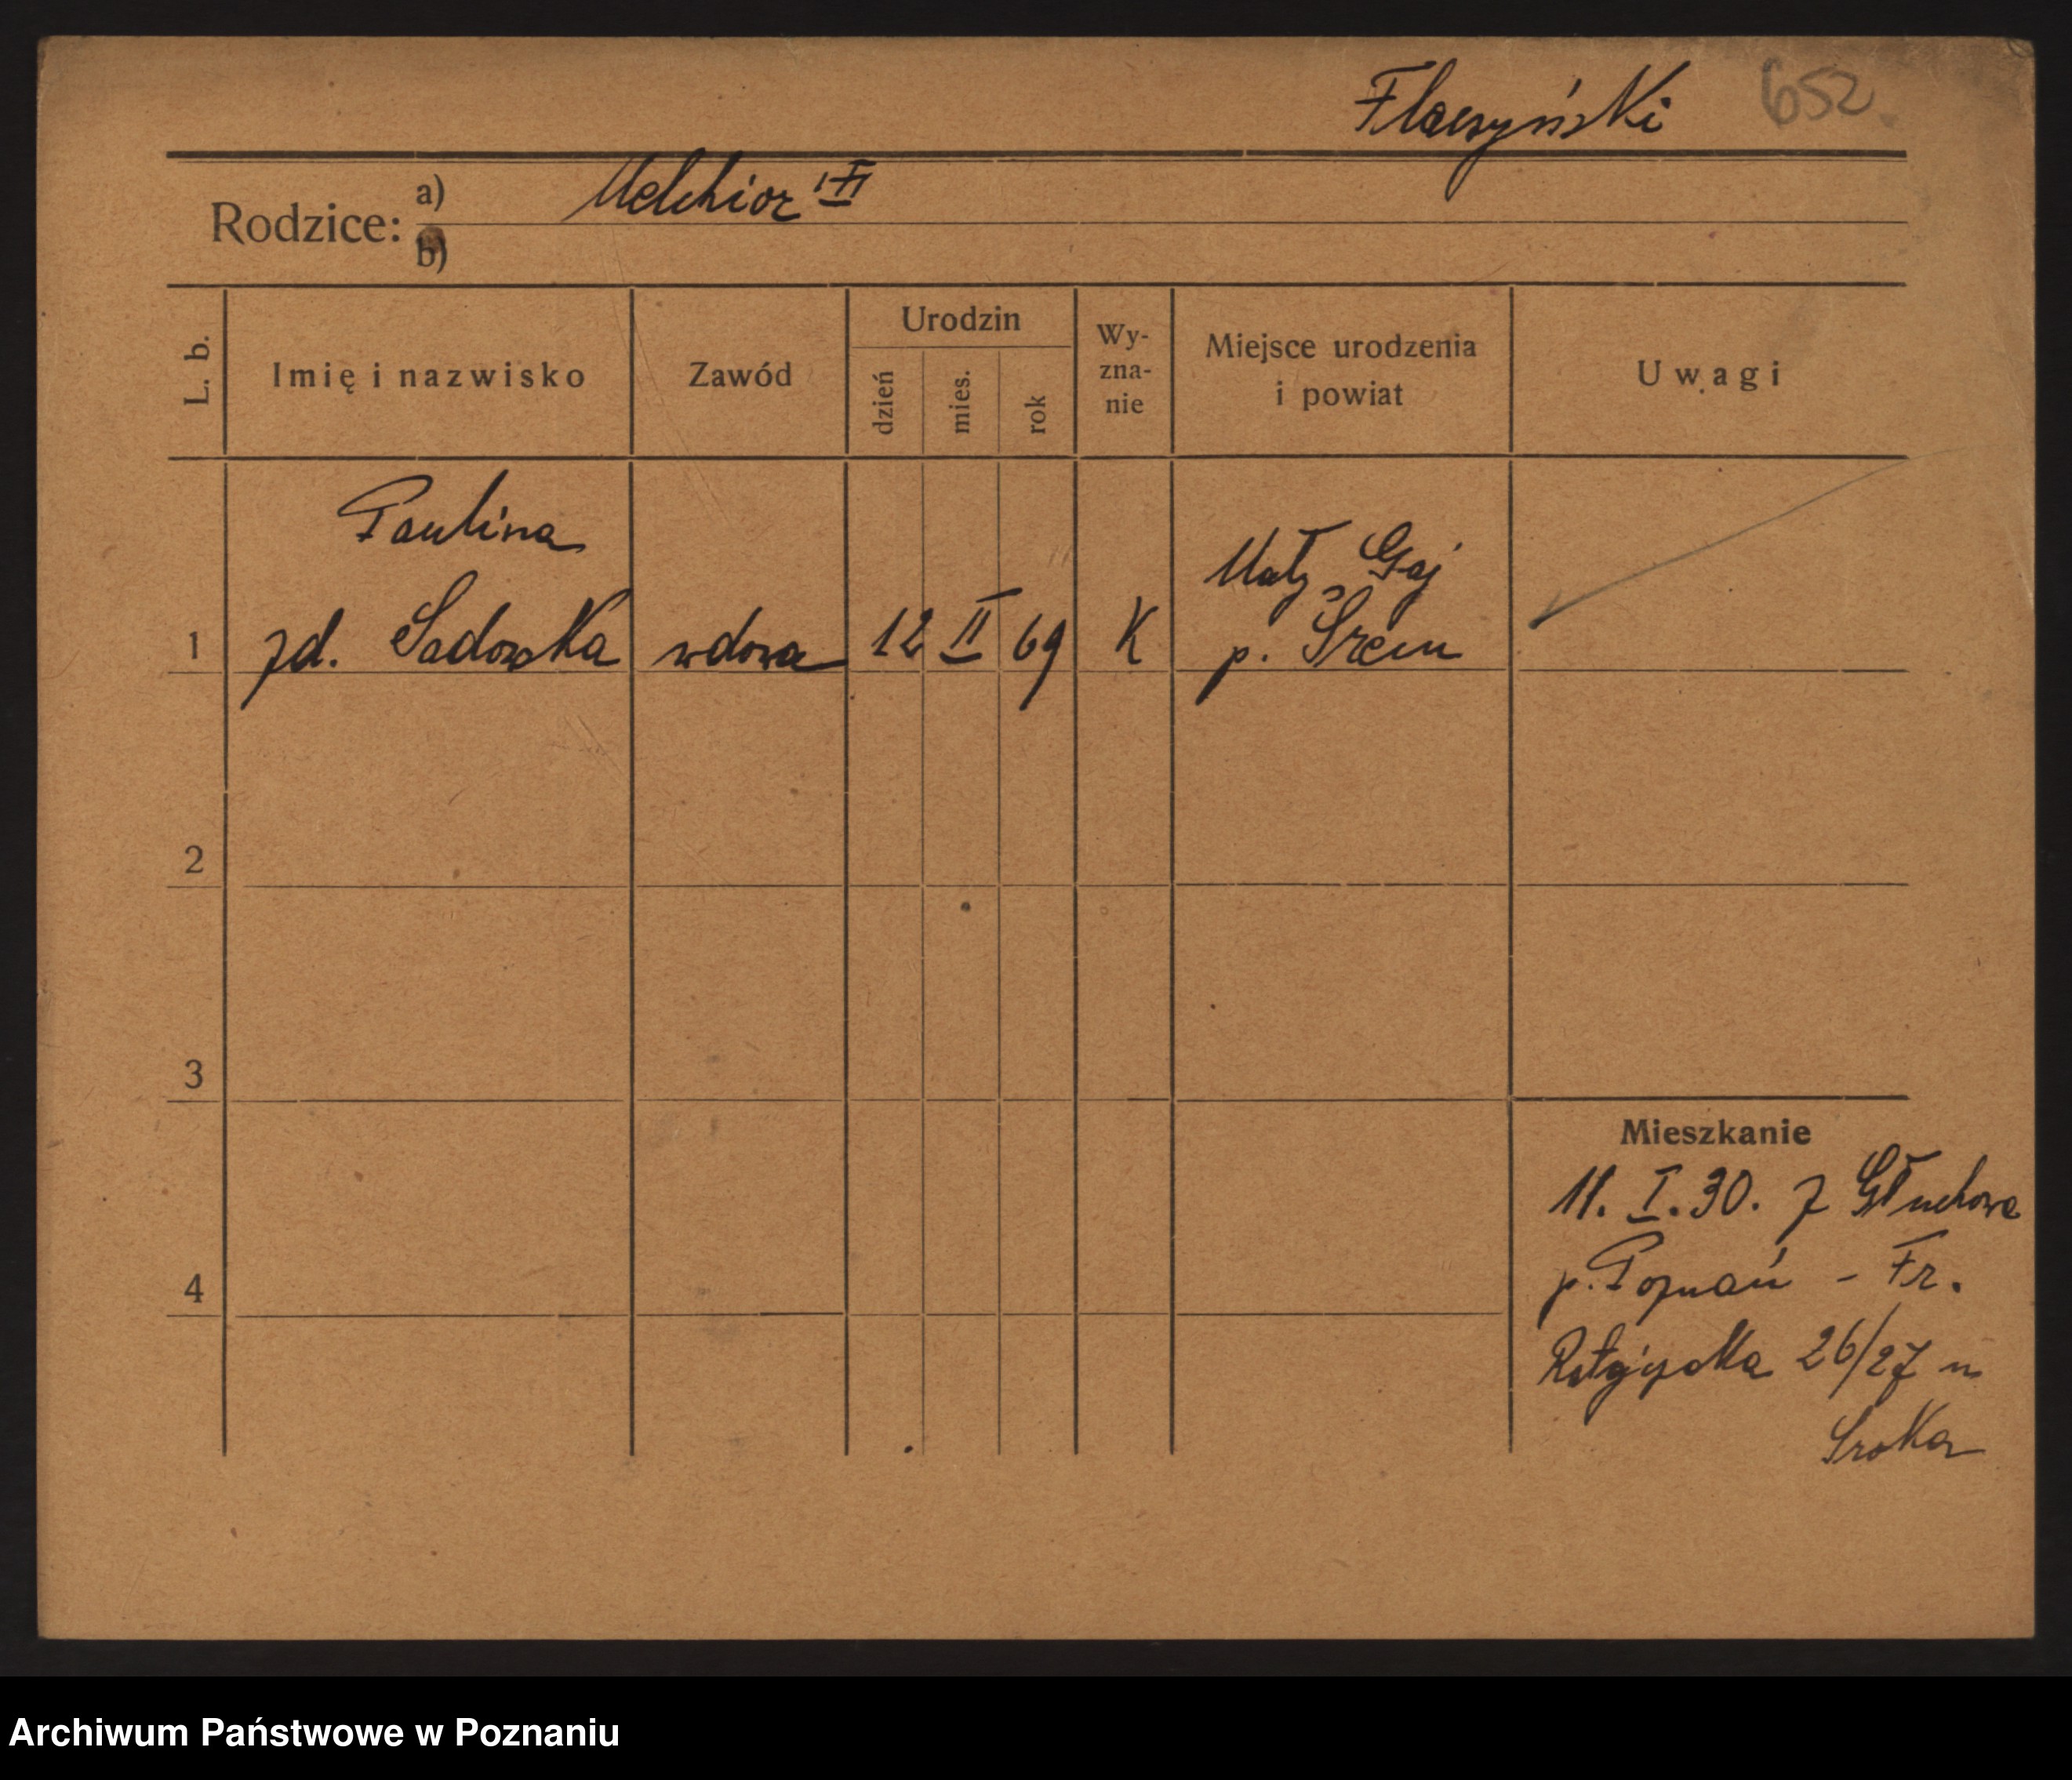 Flaczyński 652.
Rodzice: a) Melchior
b)
L. b.
Imię i nazwisko
Zawód
Urodzin
dzień
mies.
rok
Wy-
zna-
nie
Miejsce urodzenia
i powiat
Uwagi
Paulina
1 zd. Sadowska wdowa 12 II 69 K Mały Gaj
p. Śrem
2
3
4
Mieszkanie
11. I. 30. z Głuchowa
p. Poznań - Fr.
Ratajczaka 26/27 u
Sroka
Archiwum Państwowe w Poznaniu